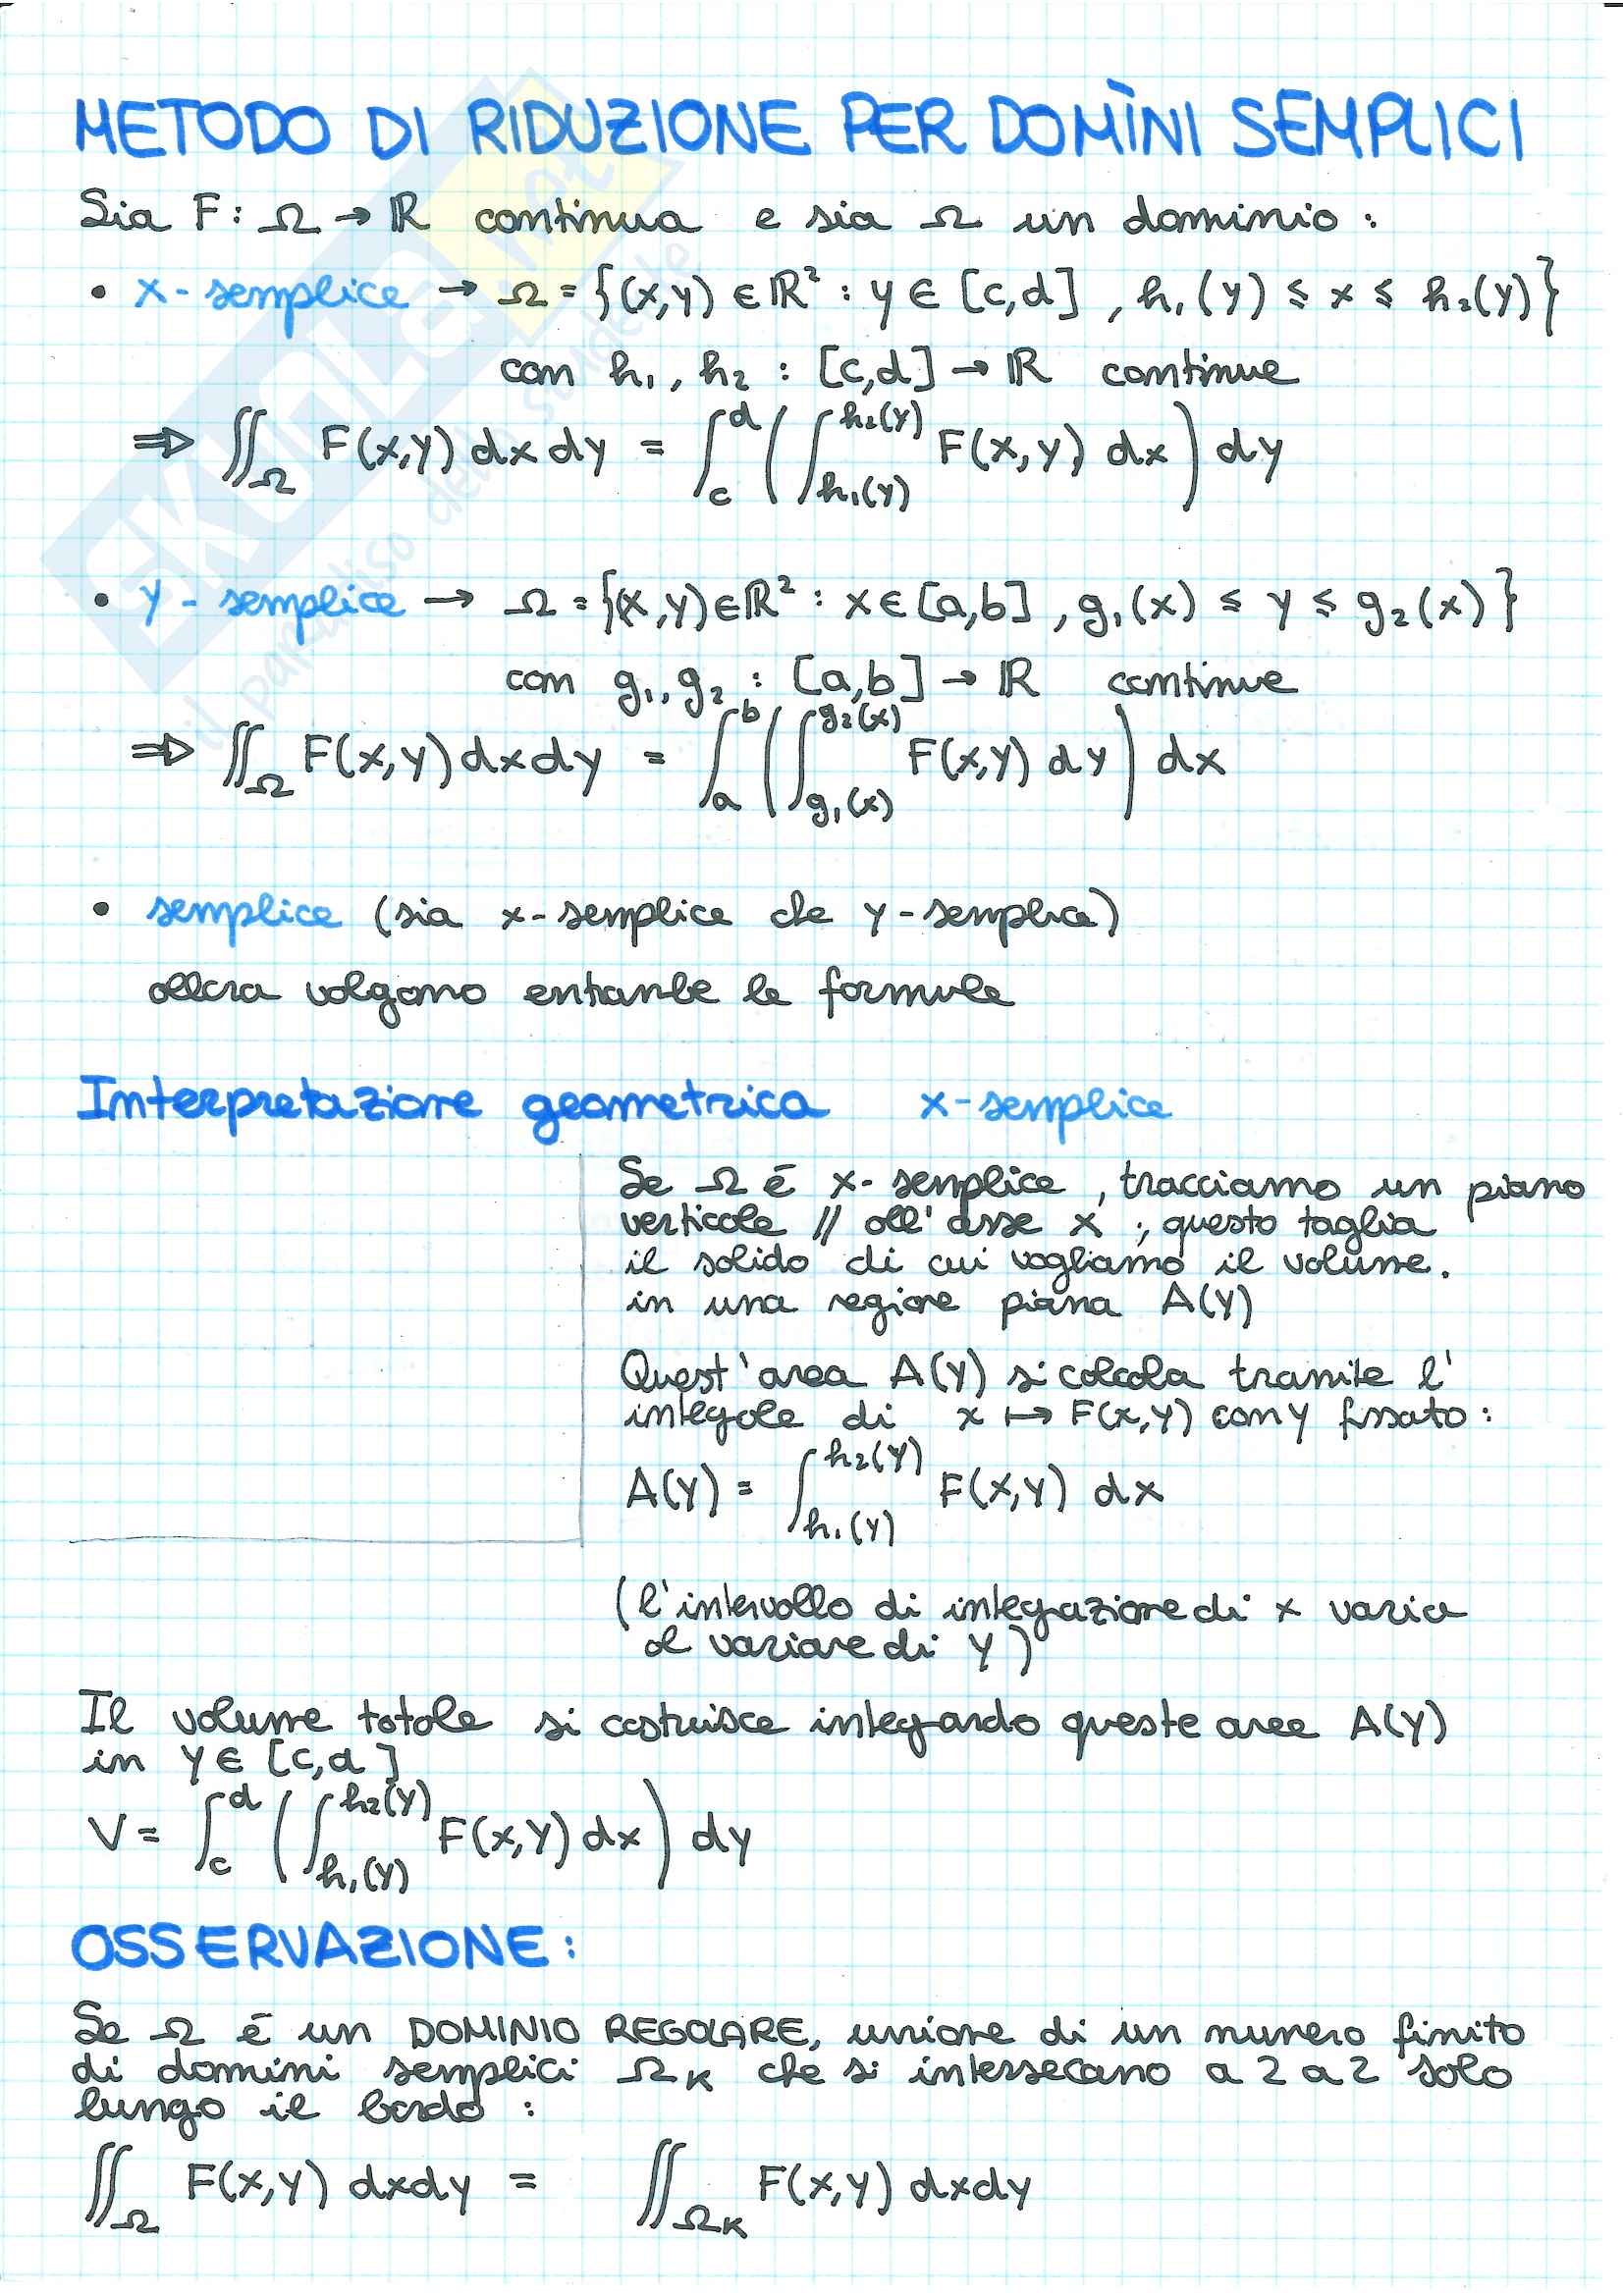 METODO DI RIDUZIONE PER DOMÌNI SEMPLICI
Sia F: Ω → ℝ continua e sia Ω un dominio:
• x-semplice → Ω = {(x,y) ∈ ℝ² : y ∈ [c,d], h₁(y) ≤ x ≤ h₂(y)}
con h₁, h₂ : [c,d] → ℝ continue
⇒ ∬_Ω F(x,y) dx dy = ∫_c^d ( ∫_{h₁(y)}^{h₂(y)} F(x,y) dx ) dy
• y-semplice → Ω = {(x,y) ∈ ℝ² : x ∈ [a,b], g₁(x) ≤ y ≤ g₂(x)}
con g₁, g₂ : [a,b] → ℝ continue
⇒ ∬_Ω F(x,y) dx dy = ∫_a^b ( ∫_{g₁(x)}^{g₂(x)} F(x,y) dy ) dx
• semplice (sia x-semplice che y-semplice)
allora valgono entrambe le formule
Interpretazione geometrica x-semplice
Se Ω é x-semplice, tracciamo un piano
verticale // all'asse x ; questo taglia
il solido di cui vogliamo il volume.
in una regione piana A(y)
Quest'area A(y) si calcola tramite l'
integrale di x ↦ F(x,y) con y fissato:
A(y) = ∫_{h₁(y)}^{h₂(y)} F(x,y) dx
(l'intervallo di integrazione di x varia
al variare di y)
Il volume totale si costruisce integrando queste aree A(y)
in y ∈ [c,d]
V = ∫_c^d ( ∫_{h₁(y)}^{h₂(y)} F(x,y) dx ) dy
OSSERVAZIONE:
Se Ω é un DOMINIO REGOLARE, unione di un numero finito
di domini semplici Ω_K che si intersecano a 2 a 2 solo
lungo il bordo :
∬_Ω F(x,y) dxdy = ∬_{Ω_K} F(x,y) dxdy